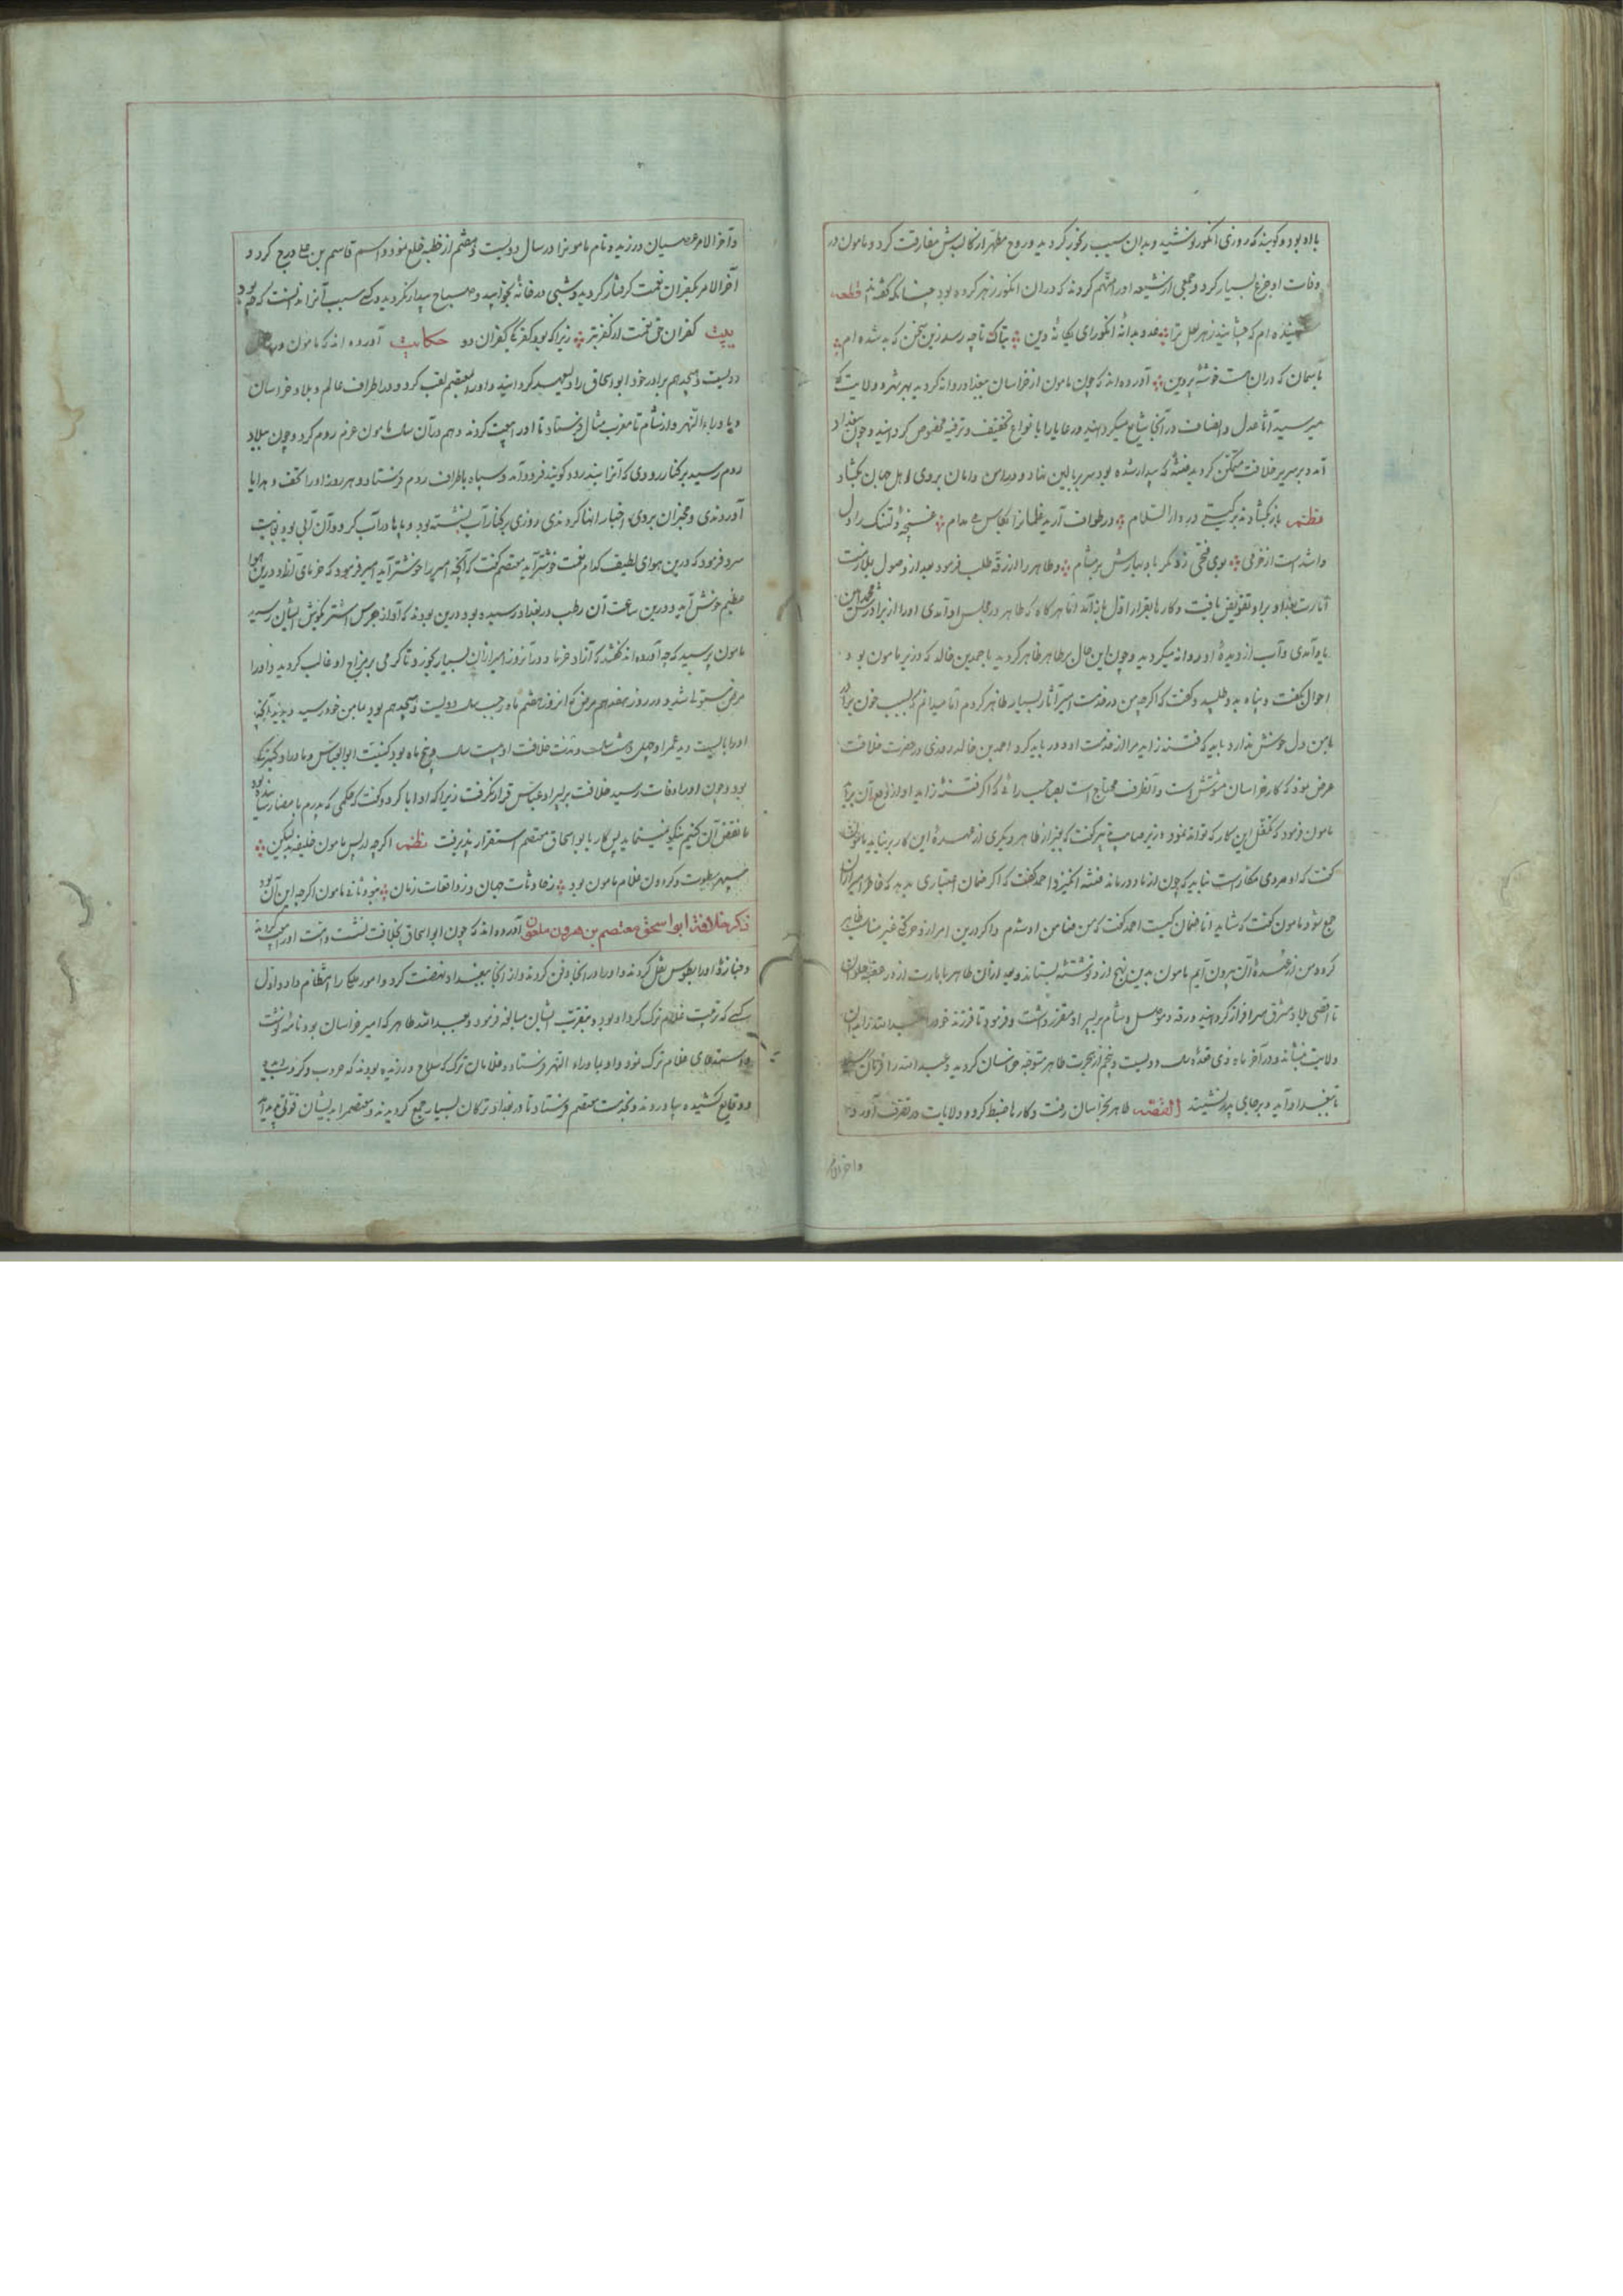 با او بود و گویند که روزی انگور نوشید و بدان سبب رنجور گردید و روح مطهر از کالبدش مفارقت کرد و مامون در
وفات او جزع بسیار کرد و جمعی از شیعه اورا متهم کردند که در ان انگور زهر کرده بود چنانکه گفته اند قطعه
شنیده ام که چشانید زهر لعل ترا عدو بدانه انگور ای یگانه دین بتاک تا چه رسد زین سخن که بشنیده ام
باسمان که دران هست خوشه پروین آورده اند که چون مامون از خراسان ببغداد روانه گردید بهر شهر و ولایت که
میرسید آثار عدل و انصاف در آنجا شایع میگردانید و رعایا را بانواع تخفیف و ترفیه مخصوص گردانید و چون ببغداد
آمد و بر سریر خلافت متمکن گردید فتنه که بیدار شده بود سر ببالین نهاد و در امن و امان بروی اهل جهان بگشاد
نظم باز بگشادند بر گیتی در دار السلام در طواف آرید
واشد است از خرمی بوی فتحی بر مشام و طاهر را از رقه طلب فرمود بعد از وصول بملازمت
امارت بغداد بر او تفویض یافت و کارها بقرار اول باز آمد اما هر گاه که طاهر در مجلس او آمدی اورا از برادرش محمد امین
یاد آمدی و آب از دیده او روانه میگردید و چون این حال بر طاهر ظاهر گردید با احمد بن خالد که وزیر مامون بود
احوال بگفت و پناه بدو طلبید و گفت که اگرچه من در خدمت امیر آثار بسیار ظاهر کردم اما میدانم که بسبب خون برادر
با من دل خوش ندارد باید که مرا از خدمت او دور باید کرد احمد بن خالد روزی در حضرت خلافت
عرض نمود که کار خراسان مشوش است و آنطرف محتاج است بصاحب رائی که اگر فتنه زاید او از دفع آن برآید
مامون فرمود که متکفل این کار که تواند نمود وزیر صاحب تدبیر گفت که بغیر از طاهر دیگری از عهده این کار بر نیاید مامون
گفت که او مردی مکار است نباید که چون از ما دور ماند فتنه انگیزد احمد گفت که اگر ضمان اعتباری بدهد که خاطر امیر ازان
جمع شود مامون گفت که شاید اما ضمان کیست احمد گفت که من ضامن او شدم و اگر درین امر از و حرکتی غیر مناسب ظاهر
گردد من از عهده آن بیرون آیم مامون بدین نهج ازو نوشته بستاند و بعد ازان طاهر بامارت از در عقبه حلوان
تا اقصی بلاد مشرق سرافراز گردانید و رقه و موصل و شام بر پسر او مقرر داشت و فرمود تا فرزند خود عبد الله را بدان
ولایت بنشاند و در آخر ماه ذی قعده سنه دویست و پنجم از هجرت طاهر متوجه خراسان گردید و عبد الله را فرمان
تا ببغداد آید و بر جای پدر نشیند القصه طاهر بخراسان رفت و کارها ضبط کرد و ولایات در تصرف آورد
واخر الامر
و آخر الامر عصیان ورزید و نام مامونرا در سال دویست و هشتم از خطبه خلع نمود و اسم قاسم بن علی درج کرد و
آخر الامر بکفران نعمت گرفتار گردید و شبی در خانه بخوابید و صباح بیدار نگردید و کسی سبب آنرا ندانست که چه بود
بیت کفران حق نعمت از کفر بتر زیرا که بود کفر یکی کفران دو حکایت آورده اند که مامون در
دویست و هجدهم برادر خود ابو اسحاق را ولیعهد گردانید و اورا معتصم لقب کرد و در اطراف عالم و بلاد خراسان
و ما وراء النهر و از شام تا مغرب مثال فرستاد تا اورا بیعت کردند و هم در آن سال مامون عزم روم کرد و چون ببلاد
روم رسید بر کنار رودی که آنرا بذندون گویند فرود آمد و سپاه باطراف روم فرستاد و هر روز اورا تحف و هدایا
آوردندی و مخبران بروی اخبار انها کردندی روزی بر کنار آب نشسته بود و پاها در آب کرده و آن آبی بود بغایت
سرد فرمود که درین هوای لطیف کدام نعمت خوشتر آید معتصم گفت که آنچه امیر را خوشتر آید امیر فرمود که خرمای آزاد درین هوا
عظیم خوش آید و درین ساعت آن رطب در بغداد رسیده بود درین بودند که آواز جرس اشتر بگوش ایشان رسید
مامون پرسید که چه آورده اند گفتند که آزاد خرما و در آنروز امیر ازان بسیار بخورد تا گرمی بر مزاج او غالب گردید و اورا
مرض مستولی شد و در روز هفدهم مرض که انروز هشتم ماه رجب سنه دویست و هجدهم بود بمامن خود رسید و دید آنچه
اورا بایست دید عمر او چهل و هشت سال و مدت خلافت او بیست سال و پنج ماه بود کنیت ابو العباس و مادر او کنیزک
بود و چون اورا وفات رسید خلافت بر پسر او عباس قرار نگرفت زیرا که او ابا کرد و گفت که حکمی که پدرم بامضا رسانیده بود
ما نقض آن کنیم نیکو نمینماید پس کار بابو اسحاق معتصم استقرار پذیرفت نظم اگرچه از پس مامون خلیفه لیکن
سپهر سطوت و گردون غلام مامون بود ز حادثات جهان و ز واقعات زمان مامون اگرچه این آن بود
ذکر خلافة ابو اسحق معتصم بن هرون ملعون آورده اند که چون ابو اسحاق بخلافت نشست و امت اورا بیعت کردند
و جنازه اورا بطوس نقل کردند و اورا در انجا دفن کردند و از انجا ببغداد نهضت کرد و امور ملک را انتظام داد و اول
کسی که تربیت غلام ترک کرد او بود و بتقرب ایشان مبالغه فرمود و عبد الله طاهر که امیر خراسان بود نامه نوشت
و استدعای غلام ترک نمود و او بما وراء النهر فرستاد و غلامان ترک که سلاح ورزیده بودند که حروب و کروب دیده
و وقایع کشیده بیاوردند و بخدمت معتصم فرستاد تا در بغداد ترکان بسیار جمع گردیدند و معتصم را بدیشان قوتی پدید آمد